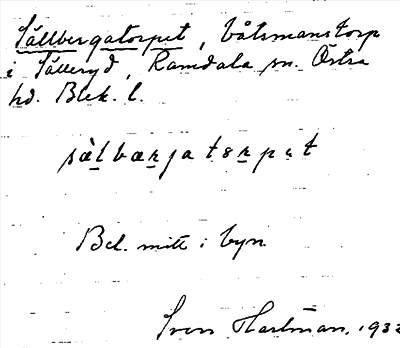 Sällbergatorpet, båtsmanstorp
i Sälleryd, Ramdala sn. Östra
hd. Blek. l.
sàlbærjatɵrpət
Bel. mitt i byn
Sven Hartman, 1932